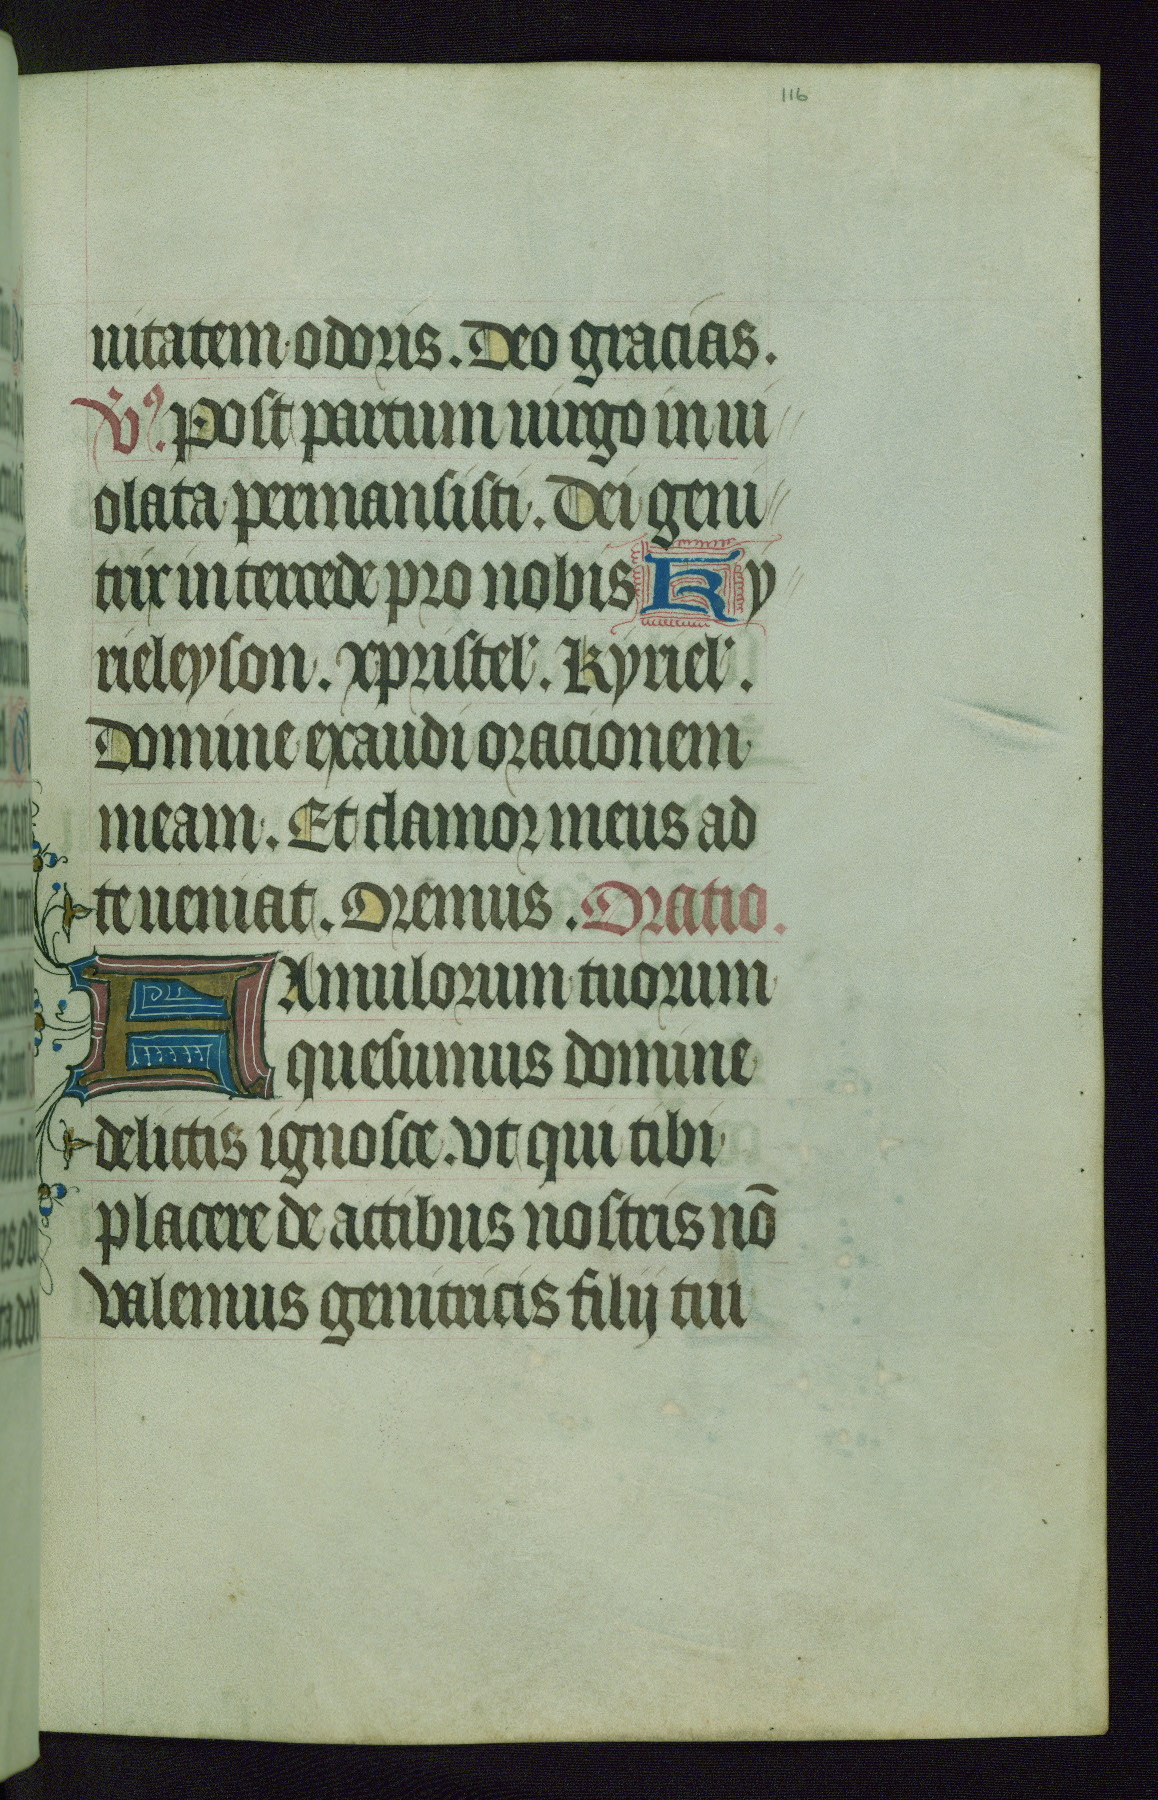 116
uitatem odoris. Deo gracias.
V9. Post partum uirgo in ui
olata permansisti. Dei geni
trix intercede pro nobis Ky
rieleyson. xpristel'. Kyriel'.
Domine exaudi oracionem
meam. Et clamor meus ad
te ueniat. Oremus. Oratio.
FAmulorum tuorum
quesumus domine
delictis ignosce. vt qui tibi
placere de actibus nostris nō
valemus genitricis filij tui